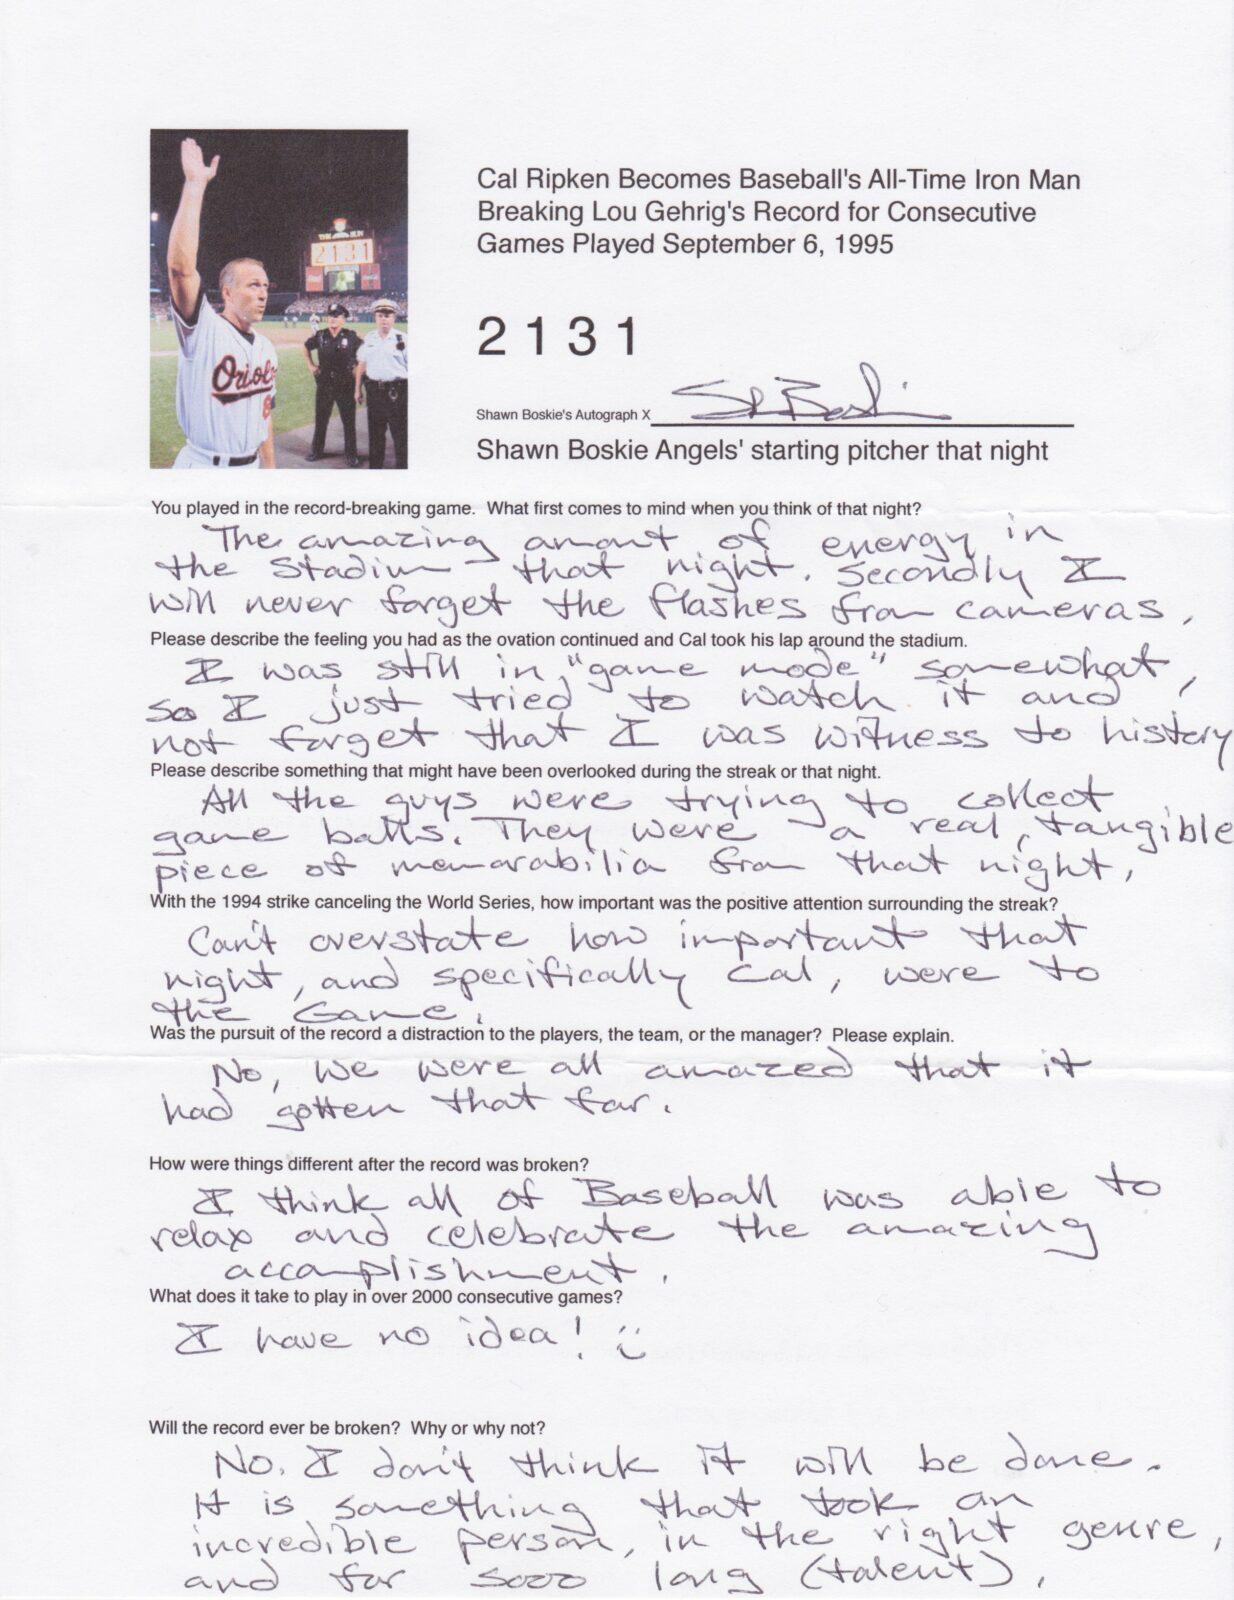 Cal Ripken Becomes Baseball's All-Time Iron Man
Breaking Lou Gehrig's Record for Consecutive
Games Played September 6, 1995
THE SUN
2131
Orioles
8
2131
Shawn Boskie's Autograph X Sh Boskie
Shawn Boskie Angels' starting pitcher that night
You played in the record-breaking game. What first comes to mind when you think of that night?
The amazing amout of energy in
the Stadium that night. Secondly I
will never forget the flashes from cameras.
Please describe the feeling you had as the ovation continued and Cal took his lap around the stadium.
I was still in "game mode" somewhat,
so I just tried to watch it and
not forget that I was witness to history
Please describe something that might have been overlooked during the streak or that night.
All the guys were trying to collect
game balls. They were a real, tangible
piece of memorabilia from that night.
With the 1994 strike canceling the World Series, how important was the positive attention surrounding the streak?
Can't overstate how important that
night, and specifically Cal, were to
the Game.
Was the pursuit of the record a distraction to the players, the team, or the manager? Please explain.
No, we were all amazed that it
had gotten that far.
How were things different after the record was broken?
I think all of Baseball was able to
relax and celebrate the amazing
accomplishment.
What does it take to play in over 2000 consecutive games?
I have no idea!
Will the record ever be broken? Why or why not?
No. I don't think it will be done.
It is something that took an
incredible person, in the right genre,
and for sooo long (talent).